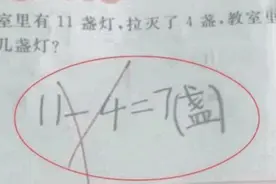 室里有 11 盏灯,拉灭了 4 盏,教室里
几盏灯?
11-4=7(盏)